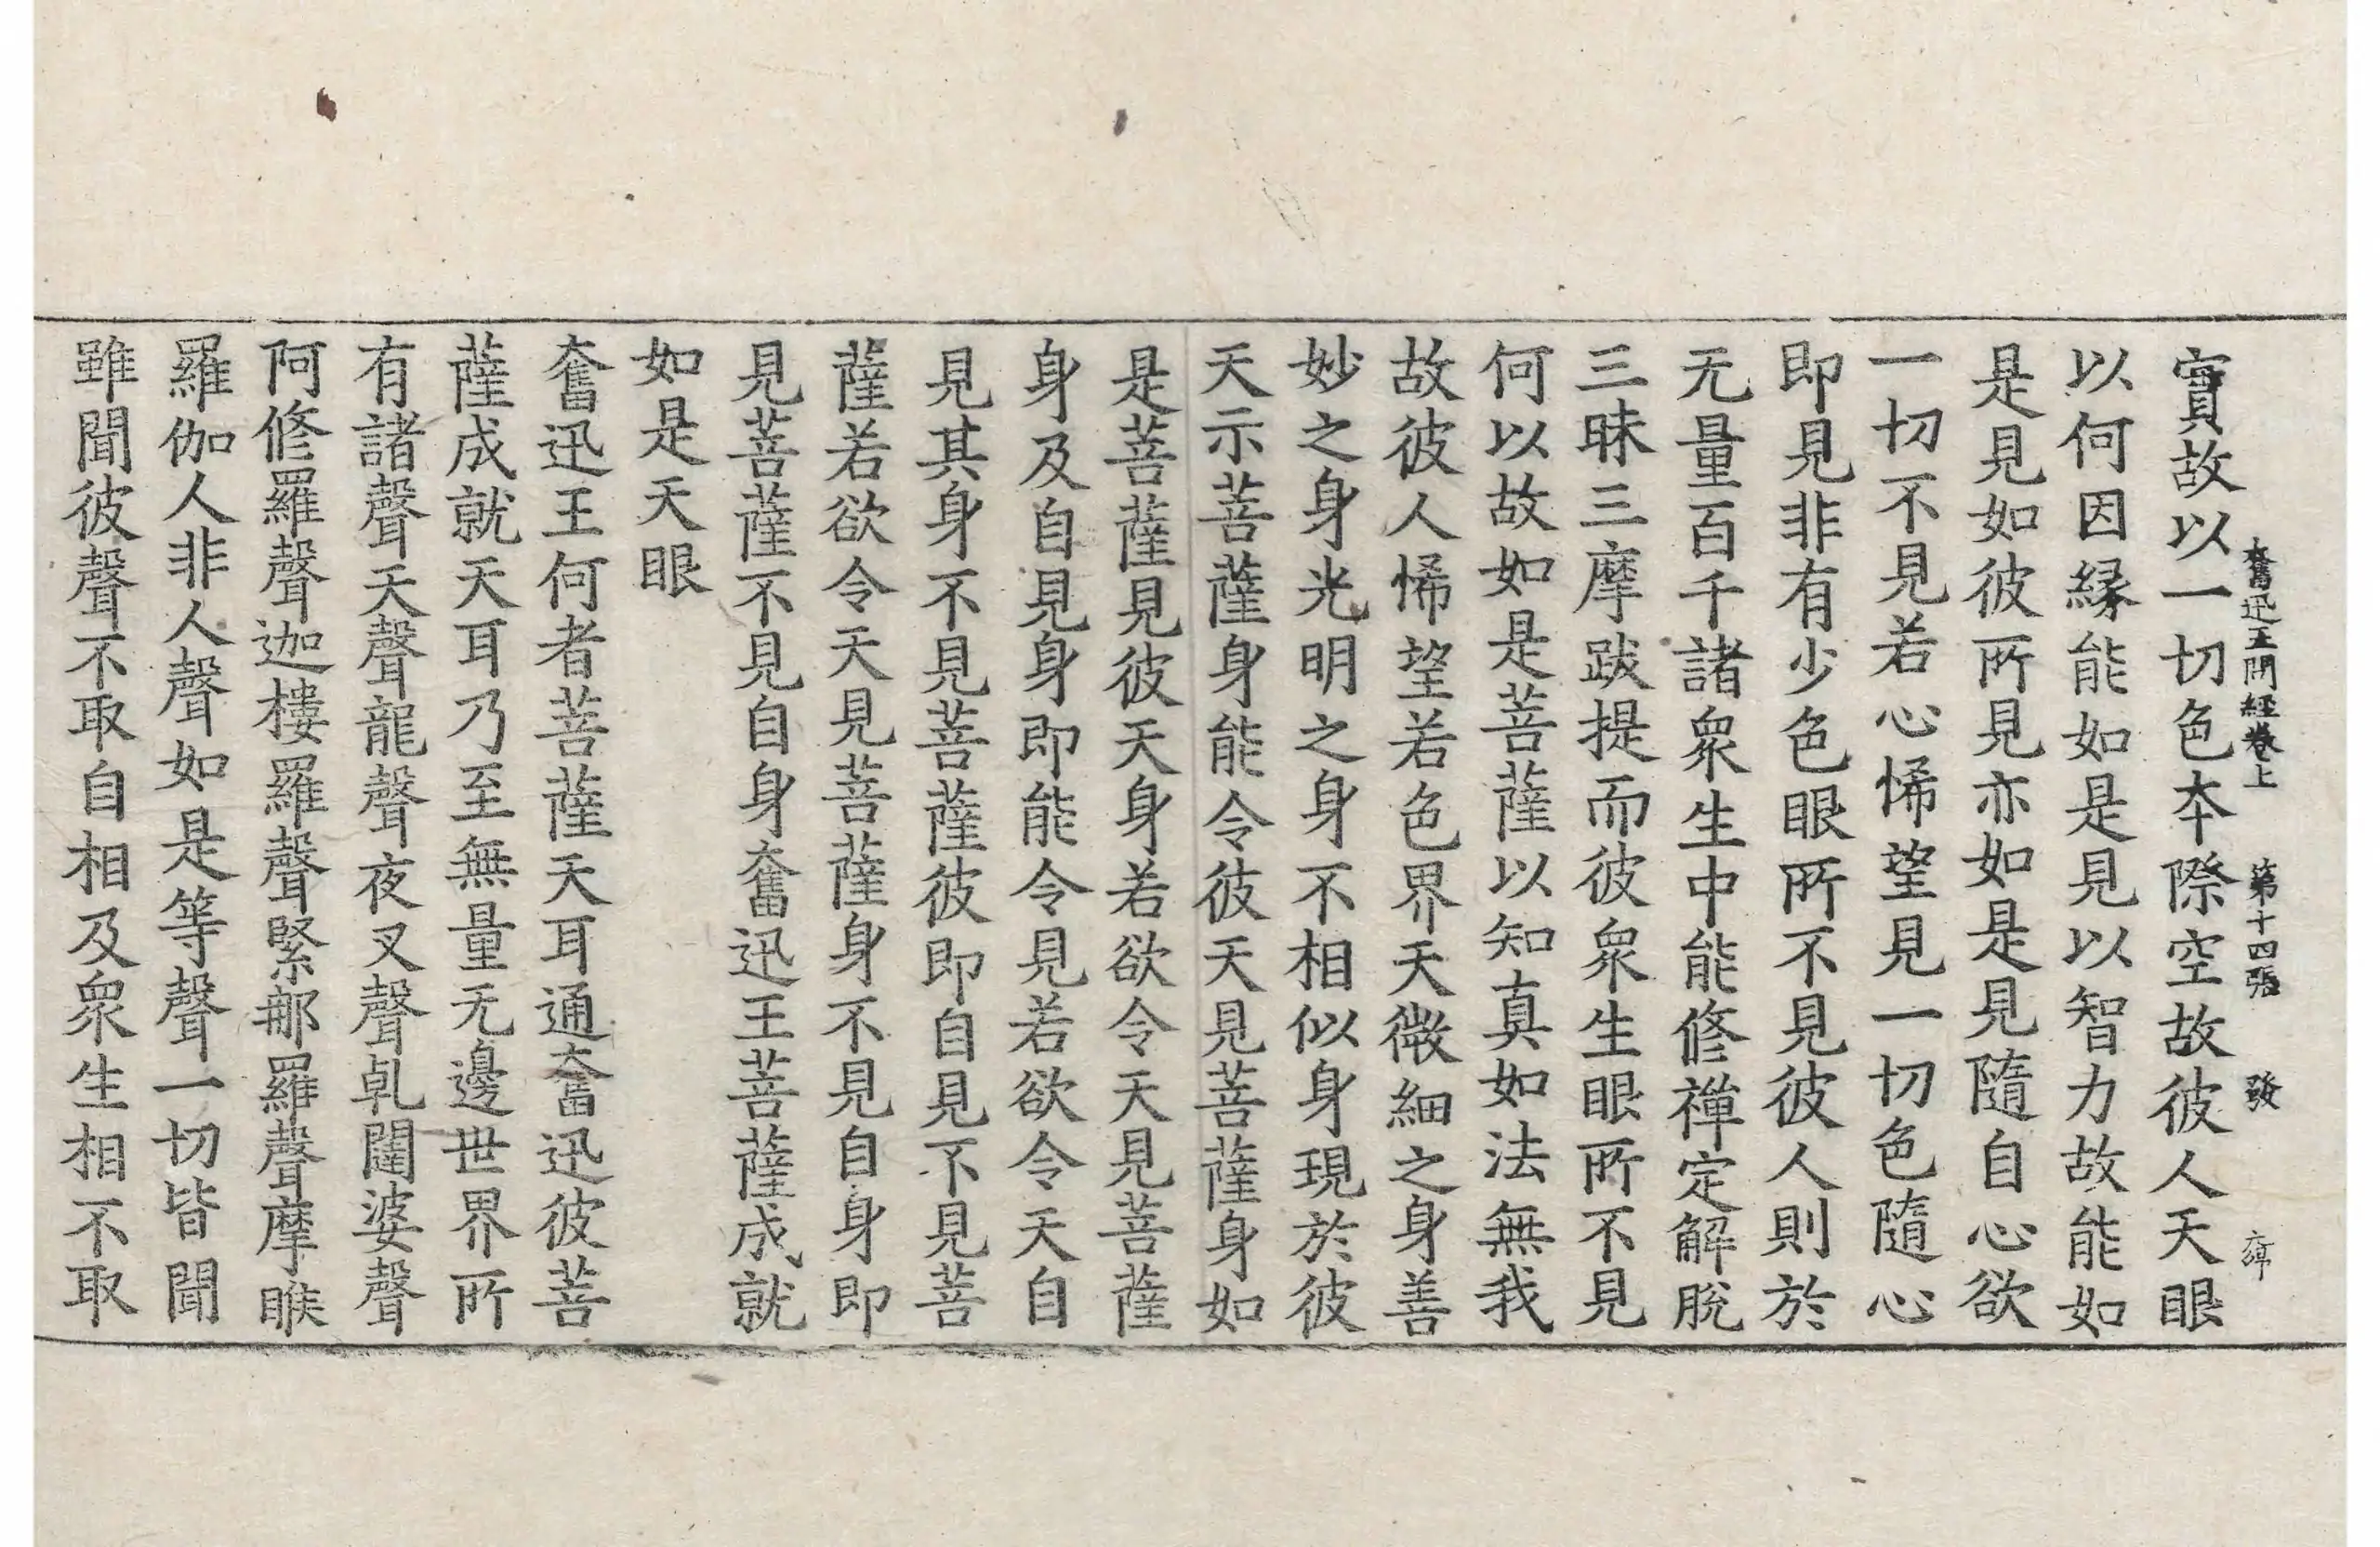 奮迅王問經卷上 第十四張 發
實故以一切色本際空故彼人天眼
以何因縁能如是見以智力故能如
是見如彼所見亦如是見隨自心欲
一切不見若心悕望見一切色隨心
即見非有少色眼所不見彼人則於
无量百千諸衆生中能修禅定解脫
三昧三摩跋提而彼衆生眼所不見
何以故如是菩薩以知真如法無我
故彼人悕望若色界天微細之身善
妙之身光明之身不相似身現於彼
天示菩薩身能令彼天見菩薩身如
是菩薩見彼天身若欲令天見菩薩
身及自見身即能令見若欲令天自
見其身不見菩薩彼即自見不見菩
薩若欲令天見菩薩身不見自身即
見菩薩不見自身奮迅王菩薩成就
如是天眼
奮迅王何者菩薩天耳通奮迅彼菩
薩成就天耳乃至無量无邊世界所
有諸聲天聲龍聲夜叉聲乹闥婆聲
阿修羅聲迦樓羅聲緊那羅聲摩睺
羅伽人非人聲如是等聲一切皆聞
雖聞彼聲不取自相及衆生相不取